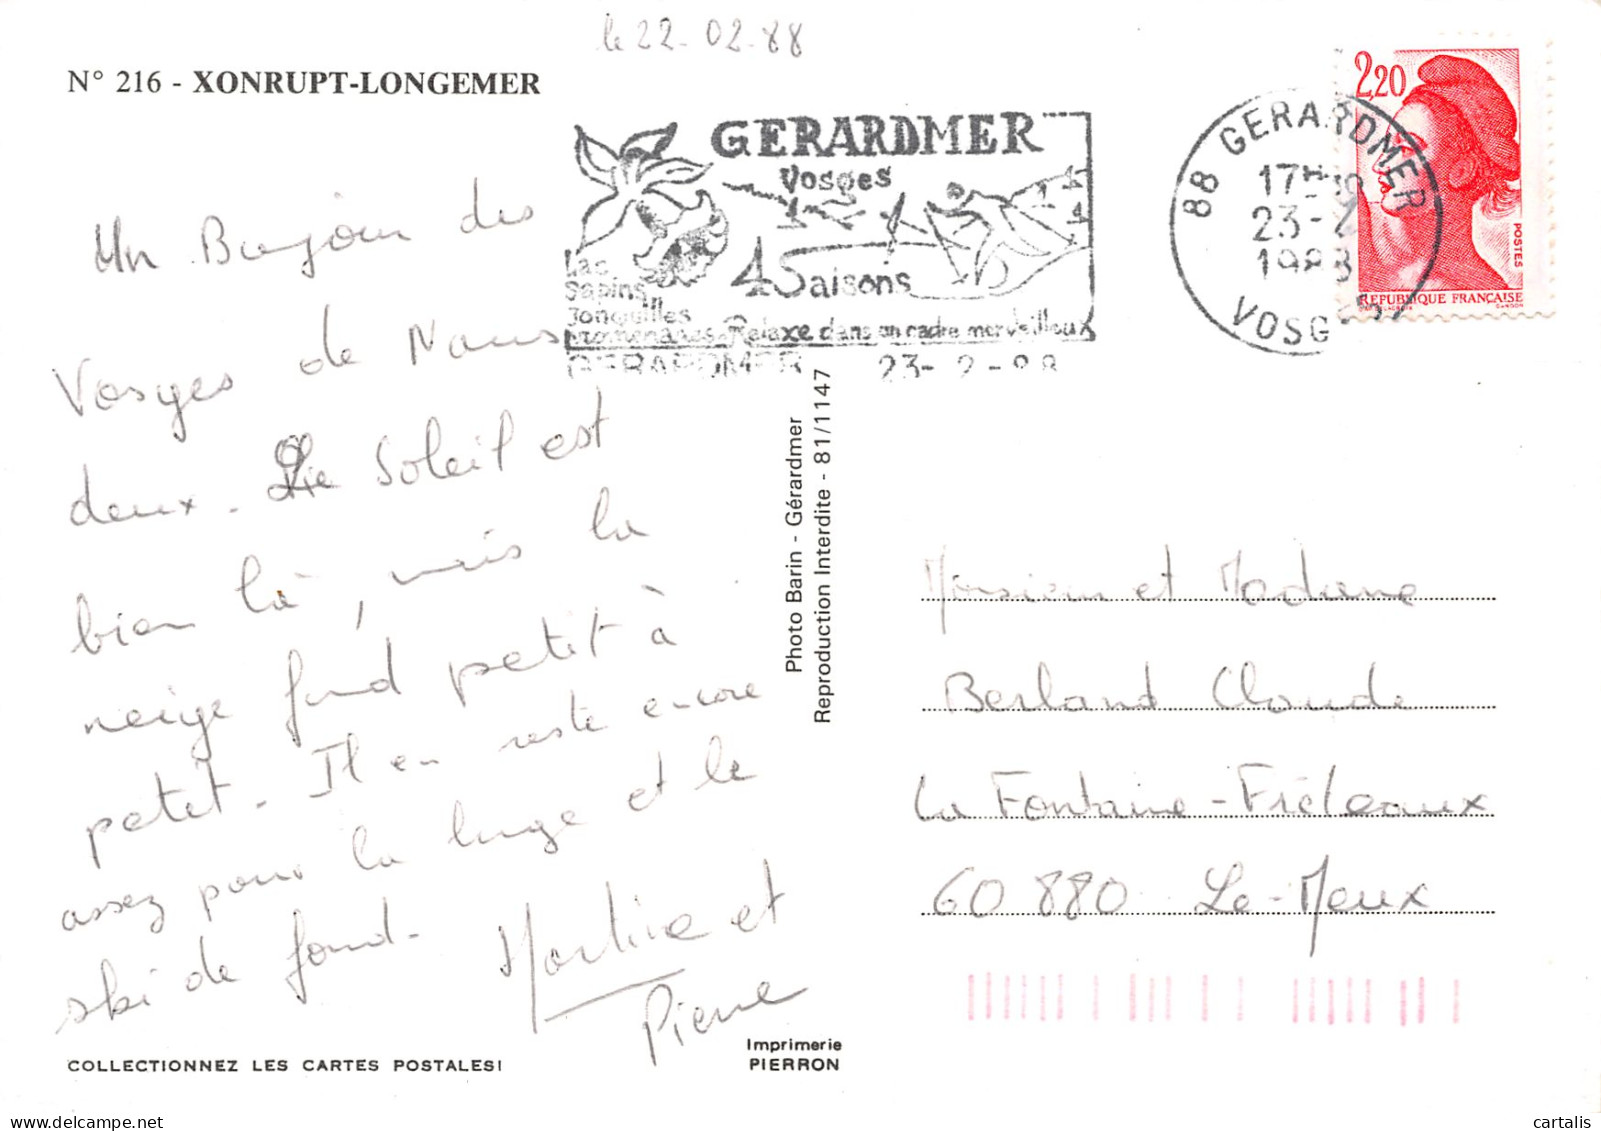 le 22-02-88
N° 216 - XONRUPT-LONGEMER
GERARDMER
Vosges
4 Saisons
Lac
Sapins
Jonquilles
Promenades - Relaxe dans un cadre merveilleux
GERARDMER 23-2-88
88 GERARDMER
17H30
23-2
1988
VOSGES
2,20
POSTES
REPUBLIQUE FRANÇAISE
Un Bonjour des
Vosges de Nous
deux. Le Soleil est
bien là, mais la
neige fond petit à
petit. Il en reste encore
assez pour la luge et le
ski de fond.
Martine et
Pierre
Photo Barin - Gérardmer
Reproduction Interdite - 81/1147
Monsieur et Madame
Berland Claude
La Fontaine-Frideaux
60 880 Le-Meux
COLLECTIONNEZ LES CARTES POSTALES!
Imprimerie
PIERRON
delcampe.net
cartalis